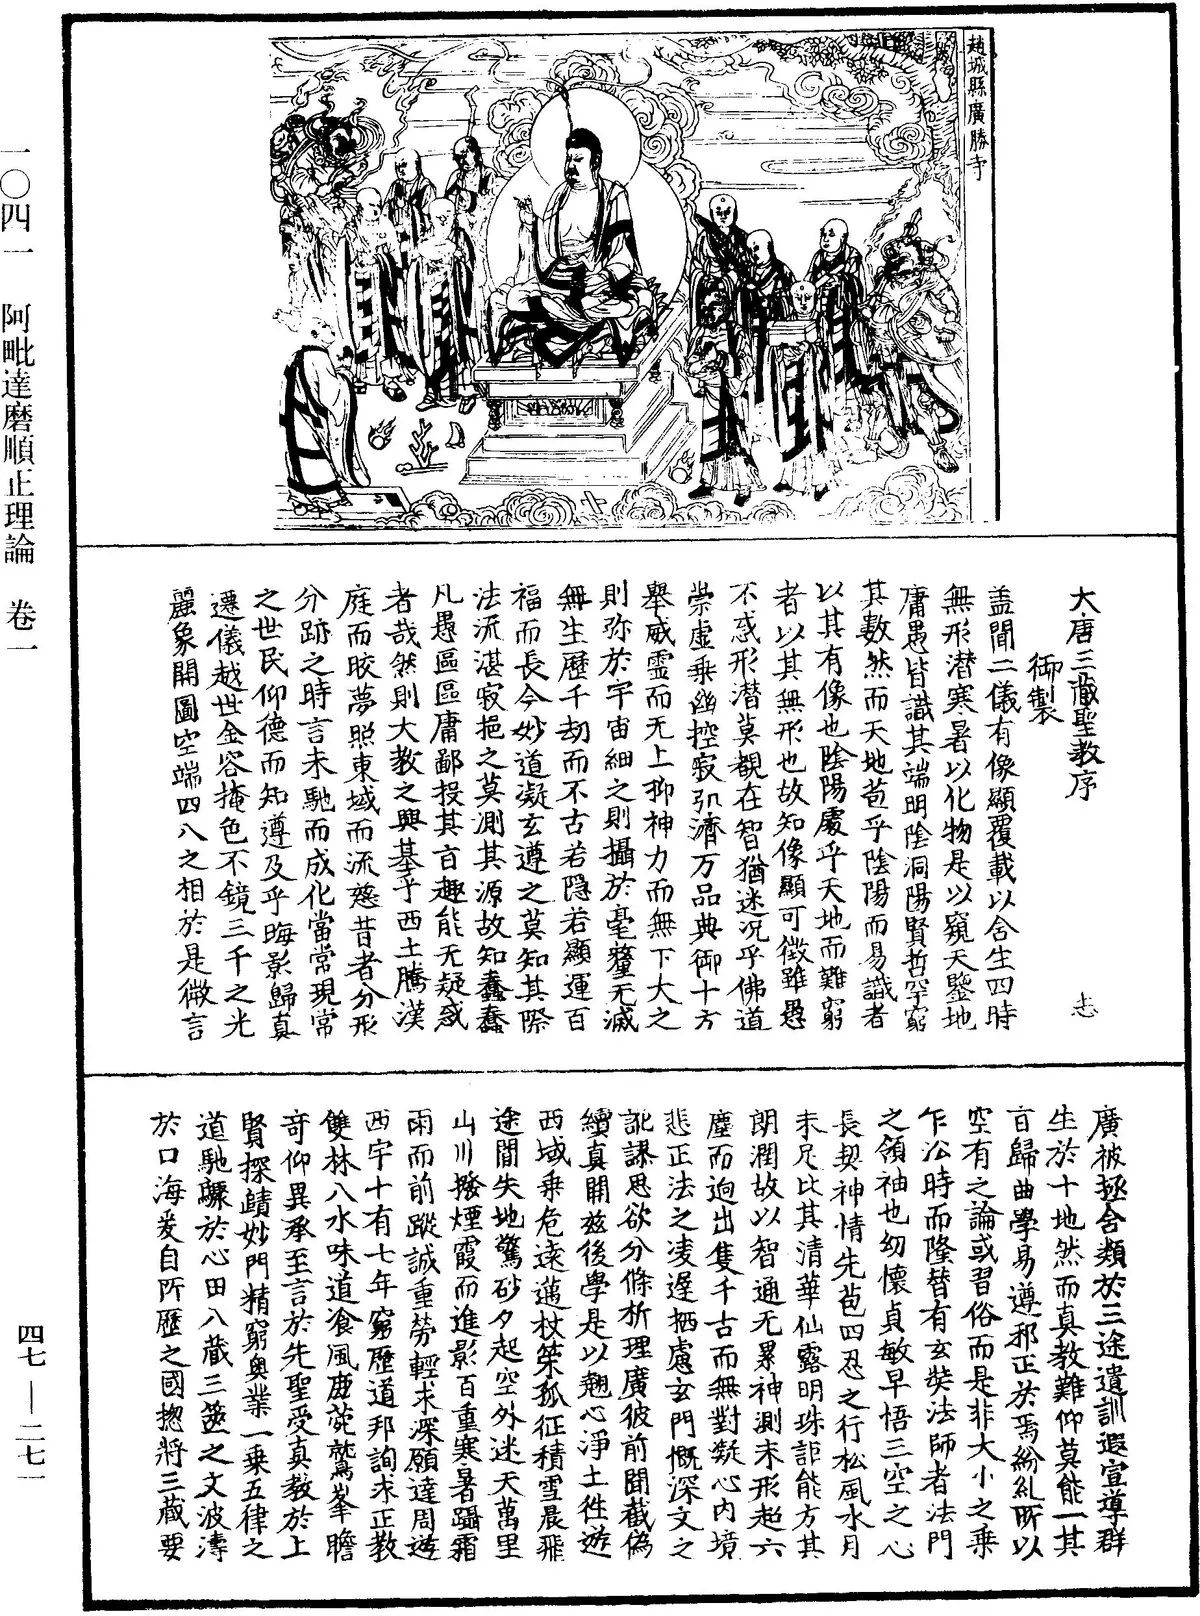 趙城縣廣勝寺
一〇四一　阿毗達磨順正理論　卷一
大唐三藏聖教序
御製
盖聞二儀有像顯覆載以含生四時
無形潛寒暑以化物是以窺天鑒地
庸愚皆識其端明陰洞陽賢哲罕窮
其數然而天地苞乎陰陽而易識者
以其有像也陰陽處乎天地而難窮
者以其無形也故知像顯可徵雖愚
不惑形潛莫覩在智猶迷況乎佛道
崇虛乘幽控寂弘濟万品典御十方
舉威靈而无上抑神力而無下大之
則弥於宇宙細之則攝於毫釐无滅
無生歷千劫而不古若隱若顯運百
福而長今妙道凝玄遵之莫知其際
法流湛寂挹之莫測其源故知蠢蠢
凡愚區區庸鄙投其旨趣能无疑惑
者哉然則大教之興基乎西土騰漢
庭而晈夢照東域而流慈昔者分形
分跡之時言未馳而成化當常現常
之世民仰德而知遵及乎晦影歸真
遷儀越世金容掩色不鏡三千之光
麗象開圖空端四八之相於是微言
廣被拯含類於三途遺訓遐宣導群
生於十地然而真教難仰莫能一其
旨歸曲學易遵邪正於焉紛糺所以
空有之論或習俗而是非大小之乘
乍訟時而隆替有玄奘法師者法門
之領袖也幼懷貞敏早悟三空之心
長契神情先苞四忍之行松風水月
未足比其清華仙露明珠詎能方其
朗潤故以智通无累神測未形超六
塵而迥出隻千古而無對凝心內境
悲正法之凌遲栖慮玄門慨深文之
訛謬思欲分條析理廣彼前聞截偽
續真開茲後學是以翹心淨土往遊
西域乘危遠邁杖策孤征積雪晨飛
途閒失地驚砂夕起空外迷天萬里
山川撥煙霞而進影百重寒暑躡霜
雨而前蹤誠重勞輕求深願達周遊
西宇十有七年窮歷道邦詢求正教
雙林八水味道飡風鹿菀鷲峯瞻
奇仰異承至言於先聖受真教於上
賢探賾妙門精窮奧業一乘五律之
道馳驟於心田八藏三篋之文波濤
於口海爰自所歷之國揔將三藏要
四七—二七一